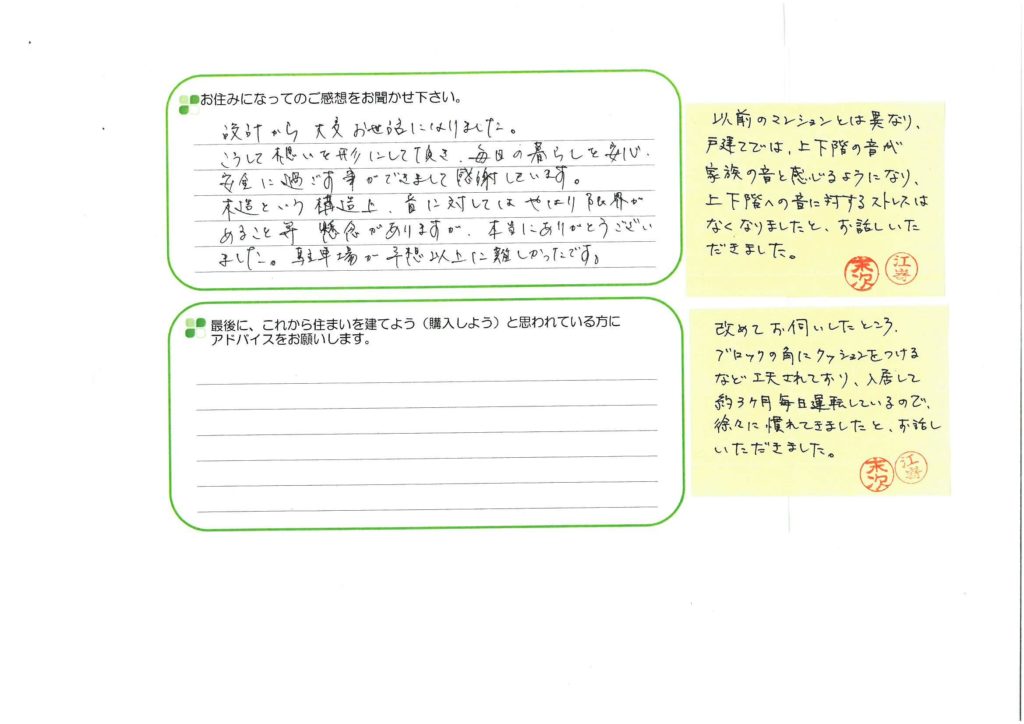 お住みになってのご感想をお聞かせ下さい。
設計から 大変 お世話になりました。
こうして想いを形にして頂き、毎日の暮らしを安心、
安全に過ごす事ができまして感謝しています。
木造という構造上、音に対してはやはり限界が
あること等 懸念がありますが、本当にありがとうござい
ました。駐車場が予想以上に難しかったです。
以前のマンションとは異なり、
戸建てでは、上下階の音が
家族の音と感じるようになり、
上下階への音に対するストレスは
なくなりましたと、お話しいた
だきました。
末次
江嵜
最後に、これから住まいを建てよう（購入しよう）と思われている方に
アドバイスをお願いします。
改めてお伺いしたところ、
ブロックの角にクッションをつける
など工夫されており、入居して
約3ヶ月毎日運転しているので、
徐々に慣れてきましたと、お話し
いただきました。
末次
江嵜